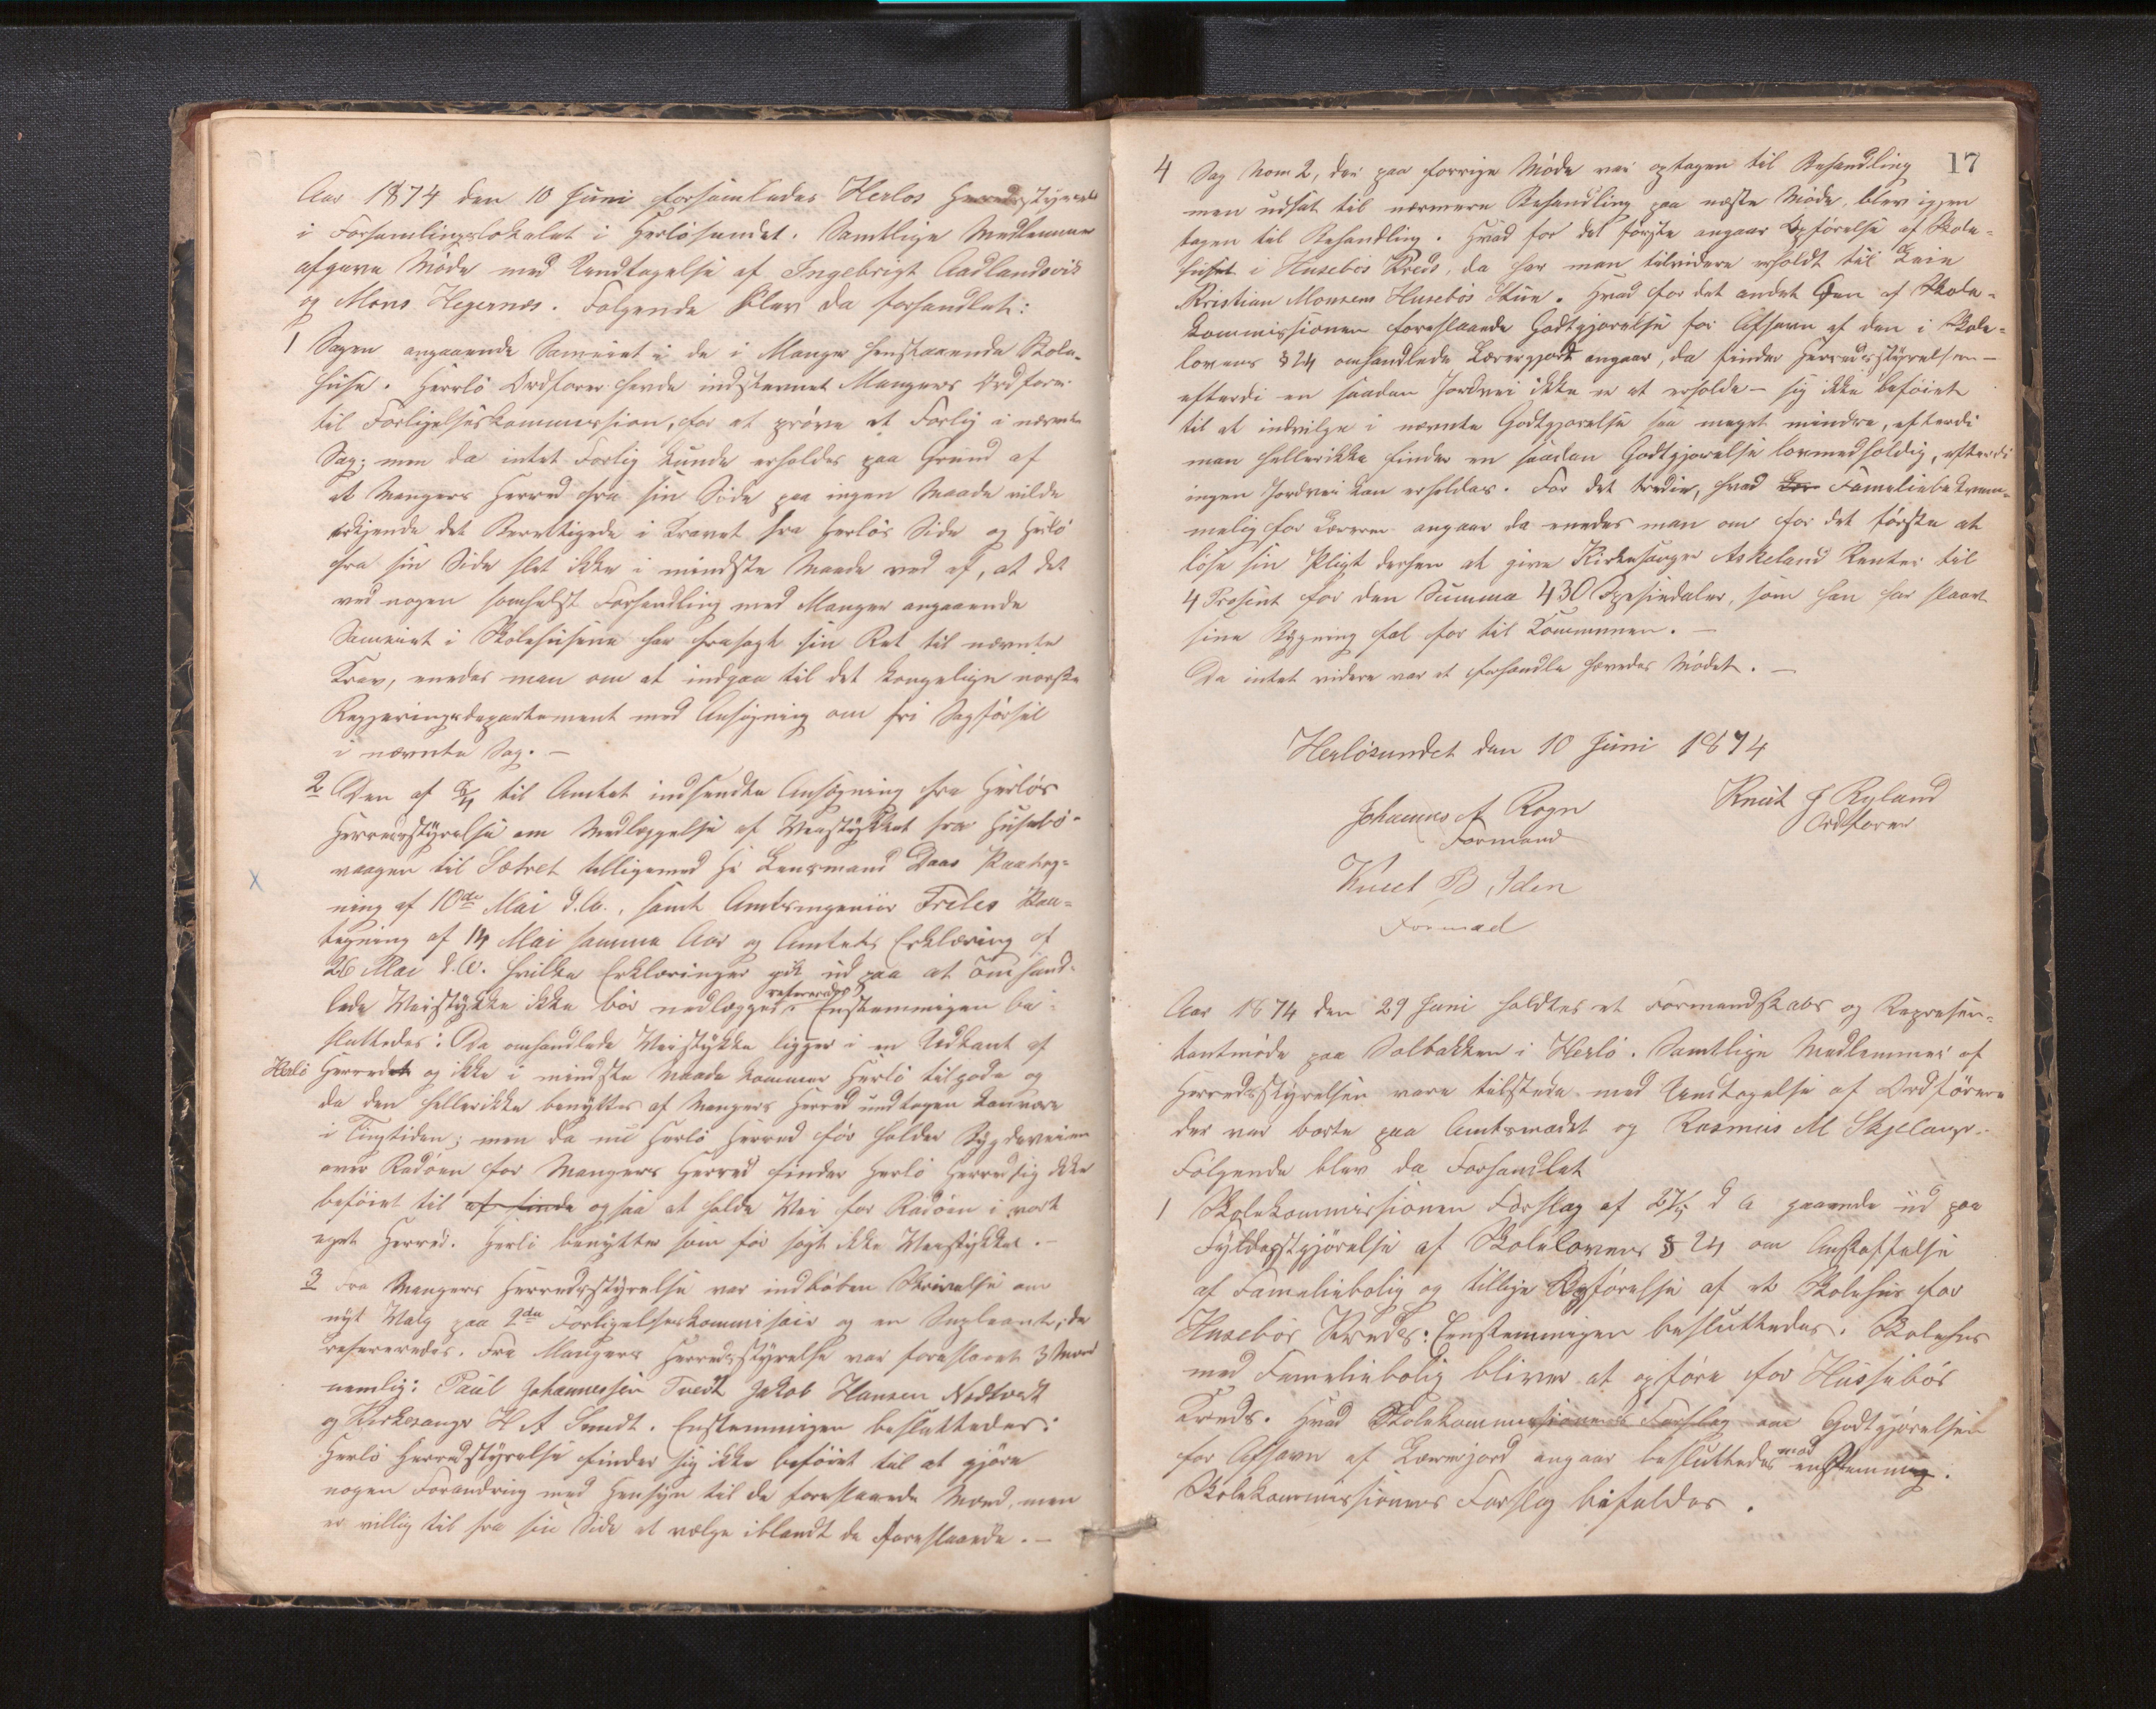 Aar 1874 den 10 Juni forsamledes Herlös Herredsstyrelse
i Forsamlingslokalet i Herlösundet. Samtlige Medlemmer
afgave Møde med Undtagelse af Ingebrigt Aadlandsvik
og Mons Hegernæs. Følgende blev da forhandlet:
1 Sagen angaaende Sameiet i de i Manger henstaaende Skole-
huse. Herrlö Ordfører havde indstevnet Mangers Ordfører
til Forligelseskommission, for at prøve et Forlig i nævnte
Sag; men da intet Forlig kunde erholdes paa Grund af
at Mangers Herred fra sin Side paa ingen Maade vilde
erkjende det Berettigede i Kravet fra Herlös Side og Herlö
fra sin Side slet ikke i mindste Maade ved af, at det
ved nogen somhelst Forhandling med Manger angaaende
Sameiet i Skolehusene har frasagt sin Ret til nævnte
Krav, enedes man om at indgaa til det kongelige norske
Regjeringsdepartement med Ansøgning om fri Sagførsel
i nævnte Sag. —
2 Den af til Amtet indsendte Ansøgning fra Herlös
Herredsstyrelse om Nedlæggelse af Veistykket fra Husebö-
vaagen til Sætret tilligemed Hr Lensmand Daaes Paateg-
ning af 10de Mai d.A., samt Amtsingeniör Paa-
tegning af 14 Mai samme Aar og Amtets Erklæring af
26 Mai d.A. hvilke Erklæringer gik ud paa at omhand-
lede Veistykke ikke bör nedlægges, refereredes. Enstemmigen be-
sluttedes: Da omhandlede Veistykke ligger i en Udkant af
Herlö Herredet og ikke i mindste Maade kommer Herlö tilgode og
da den hellerikke benyttes af Mangers Herred undtagen
i Tingtiden; men da nu Herlö Herred før holder Bygdeveien
over Radöen for Mangers Herred finder Herlö Herred sig ikke
beföiet til at finde ogsaa at holde Vei for Radöen i vort
eget Herred. Herlö benytter som før sagt ikke Veistykket. —
3 Fra Mangers Herredsstyrelse var indløben Skrivelse om
nyt Valg paa 2den Forligelseskommisair og en Supleant; de
refereredes. Fra Mangers Herredsstyrelse var foreslaaet 3 Mænd
nemlig: Paul Johannessen Tvedt Jakob Hansen Nedtvedt
og Kirkesanger H A Smidt. Enstemmigen besluttedes:
Herlö Herredsstyrelse finder sig ikke beföiet til at gjöre
nogen Forandring med Hensyn til de foreslaaede Mænd, men
er villig til fra sin Side at vælge iblandt de foreslaaede. —
17
4 Sag Nom 2, der paa forrige Møde var optagen til Behandling
men udsat til nærmere Behandling paa næste Møde, blev igjen
tagen til Behandling. Hvad for det første angaar Opførelse af Skole-
huset i Husebös Kreds, da har man tilvidere erholdt til Leie
Kristian Monsens Husebös Stue. Hvad for det andet den af Skole-
kommissionen foreslaaede Godtgjørelse for Afsavn af den i Skole-
lovens § 24 omhandlede Lærerjord angaar, da finder Herredsstyrelsen —
efterdi en saadan Jordvei ikke er at erholde — sig ikke beföiet
til at indvilge i nævnte Godtgjørelse saa meget mindre, efterdi
man hellerikke finder en saadan Godtgjørelse lovmedholdig, efterdi
ingen Jordvei kan erholdes. For det tredie, hvad Familiebekvem-
melig for Læreren angaar da enedes man om for det første at
løse sin Pligt derhen at give Kirkesanger Askeland Renter til
4 Prosent for den Summa 430 Spesiedaler, som han har slaaet
sine Bygning fal for til Kommunen. —
Da intet videre var at forhandle hævedes Mødet. —
Herlösundet den 10 Juni 1874
Johannes A Rogn
Formand
Knut J Ryland
Ordforer
Knut B Iden
Formad
Aar 1874 den 29 Juni holdtes et Formandskabs og Represen-
tantmøde paa Solbakken i Herlö. Samtlige Medlemmer af
Herredsstyrelsen vare tilstede med Undtagelse af Ordförere
der var borte paa Amtsmødet og Rasmus M Skjelanger.
Følgende blev da Forhandlet
1 Skolekommissionen Forslag af d A gaaende ud paa
Fyldestgjörelse af Skolelovens § 24 om Anskaffelse
af Familiebolig og tillige Opførelse af et Skolehus for
Husebös Kreds: Eenstemmigen besluttedes: Skolehus
med Familiebolig bliver at opføre for Hussebös
Kreds. Hvad Skolekommissionens Forslag om Godtgjörelsen
for Afsavn af Lærerjord angaar besluttedes mod en Stemme.
Skolekommissionens Forslag bifaldes.